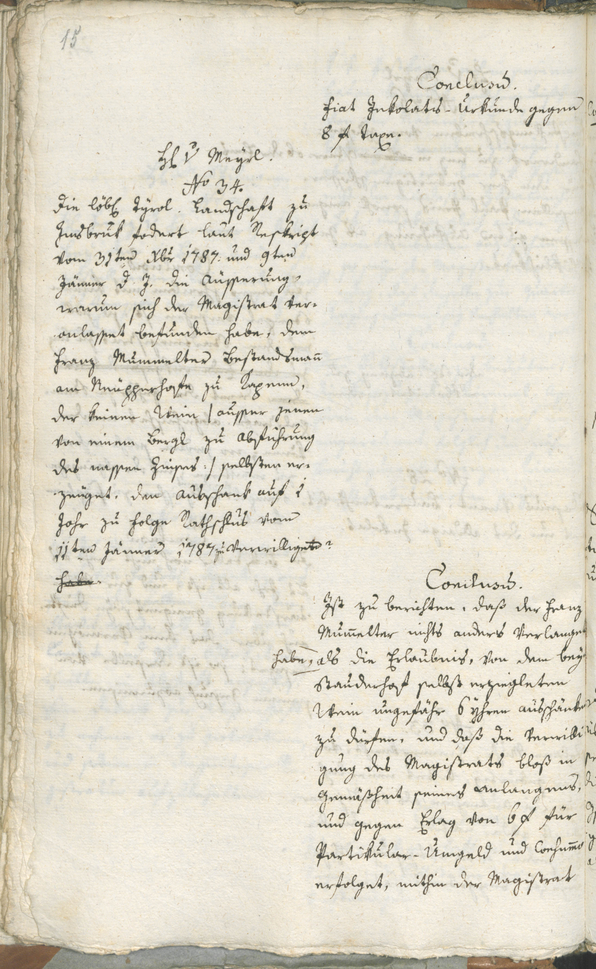 15
Conclusum.
Fiat Inkolats-Urkunde gegen
8 f Taxe.
Meyrl.
No 34.
Die löbl Tyrol. Landschaft zu
Innsbruk fodert laut Reskript
vom 31ten Xbr 1787. und 9ten
Jänner d. J. die Aüsserung,
warum sich der Magistrat ver-
anlasset befunden habe, dem
Franz Mummelter Bestandsmann
am zu
der keinen Wein /: ausser jenen
von einem Bergl zu Abführung
des nassen Zinses :/ selbsten er-
zeüget, den Ausschank auf 1
Jahr zu Folge Rathschlus vom
11ten Jänner 1787 zu verwilligen?
habe.
Conclusum.
Ist zu berichten, daß der Franz
Mumelter nichts anders verlangt
habe, als die Erlaubnis, von dem bey
Stauderhof selbst erzigleten
Wein ungefähr 6 Yhren ausschänken
zu dürfen, und daß die Verwilli-
gung des Magistrats bloß in
Gemäßheit seines Anlangens,
und gegen Erlag von 6 f für
Partikular-Umgeld und Consumo
erfolget, mithin der Magistrat